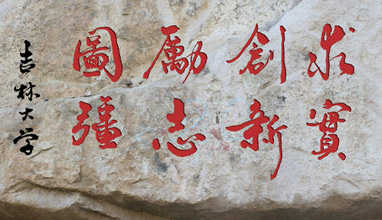 求實
創新
勵志
圖彊
吉林大学